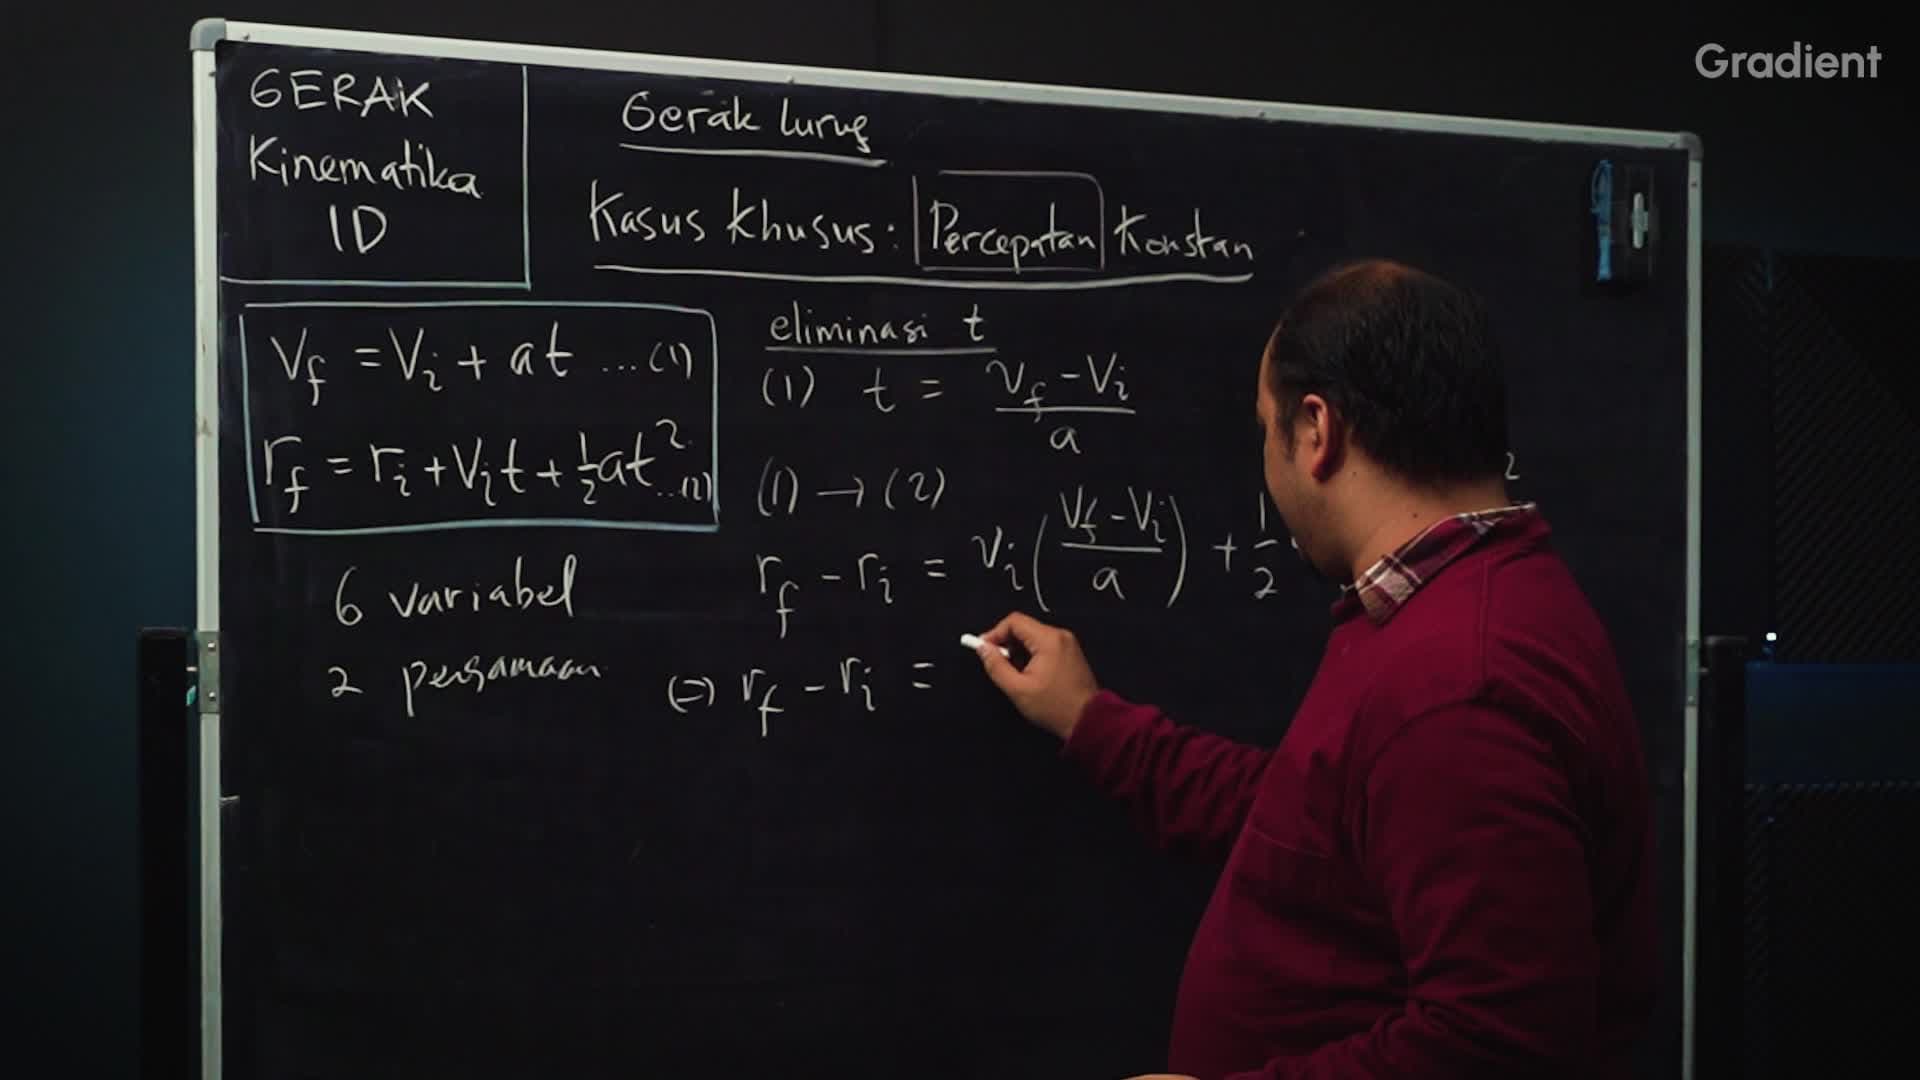 Gradient
GERAK
Kinematika
1D
Gerak lurus
Kasus Khusus: Percepatan Konstan
V_f = V_i + at ...(1)
r_f = r_i + V_i t + 1/2 at² ...(2)
6 variabel
2 persamaan
eliminasi t
(1) t = (V_f - V_i)/a
(1) → (2)
r_f - r_i = V_i ((V_f - V_i)/a) + 1/2
(=) r_f - r_i =